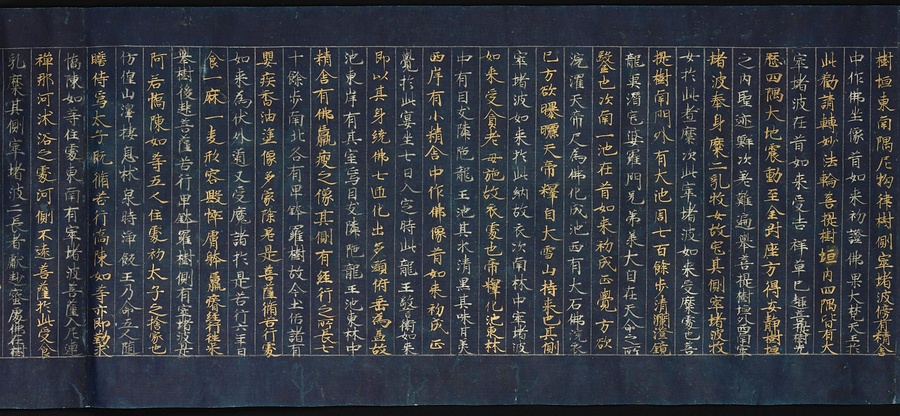 樹垣東南隅尼拘律樹側窣堵波傍有精舍
中作佛坐像昔如來初證佛果大梵天王於
此勸請轉妙法輪菩提樹垣內四隅皆有大
窣堵波在昔如來受吉祥草已趣菩提樹先
歷四隅大地震動至金剛座方得安靜樹垣
之內聖迹鱗次差難遍舉菩提樹垣外西南窣
堵波奉乳糜二牧女故宅其側窣堵波牧
女於此煮糜次此窣堵波如來受糜處也菩
提樹南門外有大池周七百餘步清瀾澄鏡
龍魚潛宅婆羅門兄弟承大自在天命之所
鑿也次南一池在昔如來初成正覺方欲
浣濯天帝釋為佛化成池西有大石佛浣衣
已方欲曝曬天帝釋自大雪山持來也其側
窣堵波如來於此納故衣次南林中窣堵波
如來受貧老母施故衣處也帝釋化池東林
中有目支隣陀龍王池其水清黑其味甘美
西岸有小精舍中作佛像昔如來初成正
覺於此宴坐七日入定時此龍王警衛如來
即以其身繞佛七匝化出多頭俯垂為蓋故
池東岸有其室焉目支隣陀龍王池東林中
精舍有佛羸瘦之像其側有經行之所長七
十餘步南北各有卑鉢羅樹故今土俗諸有
嬰疾香油塗像多蒙除差是菩薩修苦行處
如來為伏外道又受魔請於是苦行六年日
食一麻一麥形容憔悴膚體羸瘠經行往來
攀樹後起菩薩苦行卑鉢羅樹側有窣堵波是
阿若憍陳如等五人住處初太子之捨家也
彷徨山澤棲息林泉時淨飯王乃命五人隨
瞻侍焉太子既修苦行憍陳如等亦即勤求
憍陳如等住處東南有窣堵波菩薩入尼連
禪那河沐浴之處河側不遠菩薩於此受食
乳糜其側窣堵波二長者獻麨蜜處佛在樹